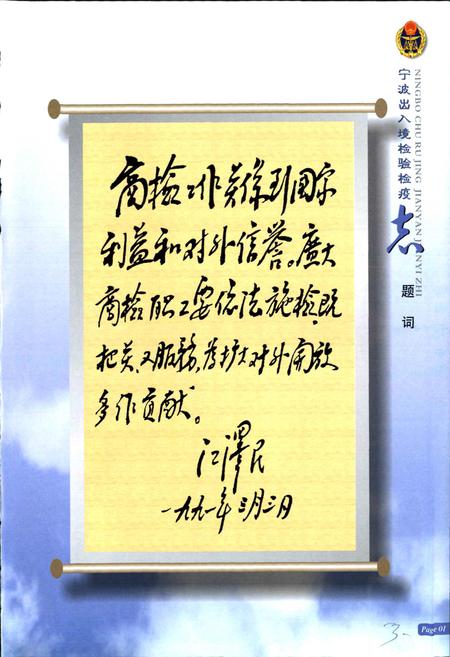 商检工作关系到国家
利益和对外信誉。广大
商检职工要依法施检,既
把关,又服务,为扩大对外开放
多作贡献。
江泽民
一九九一年三月三日
宁波出入境检验检疫志
NINGBO CHU RUJING JIANYAN JIANYI ZHI
题词
3
Page 01